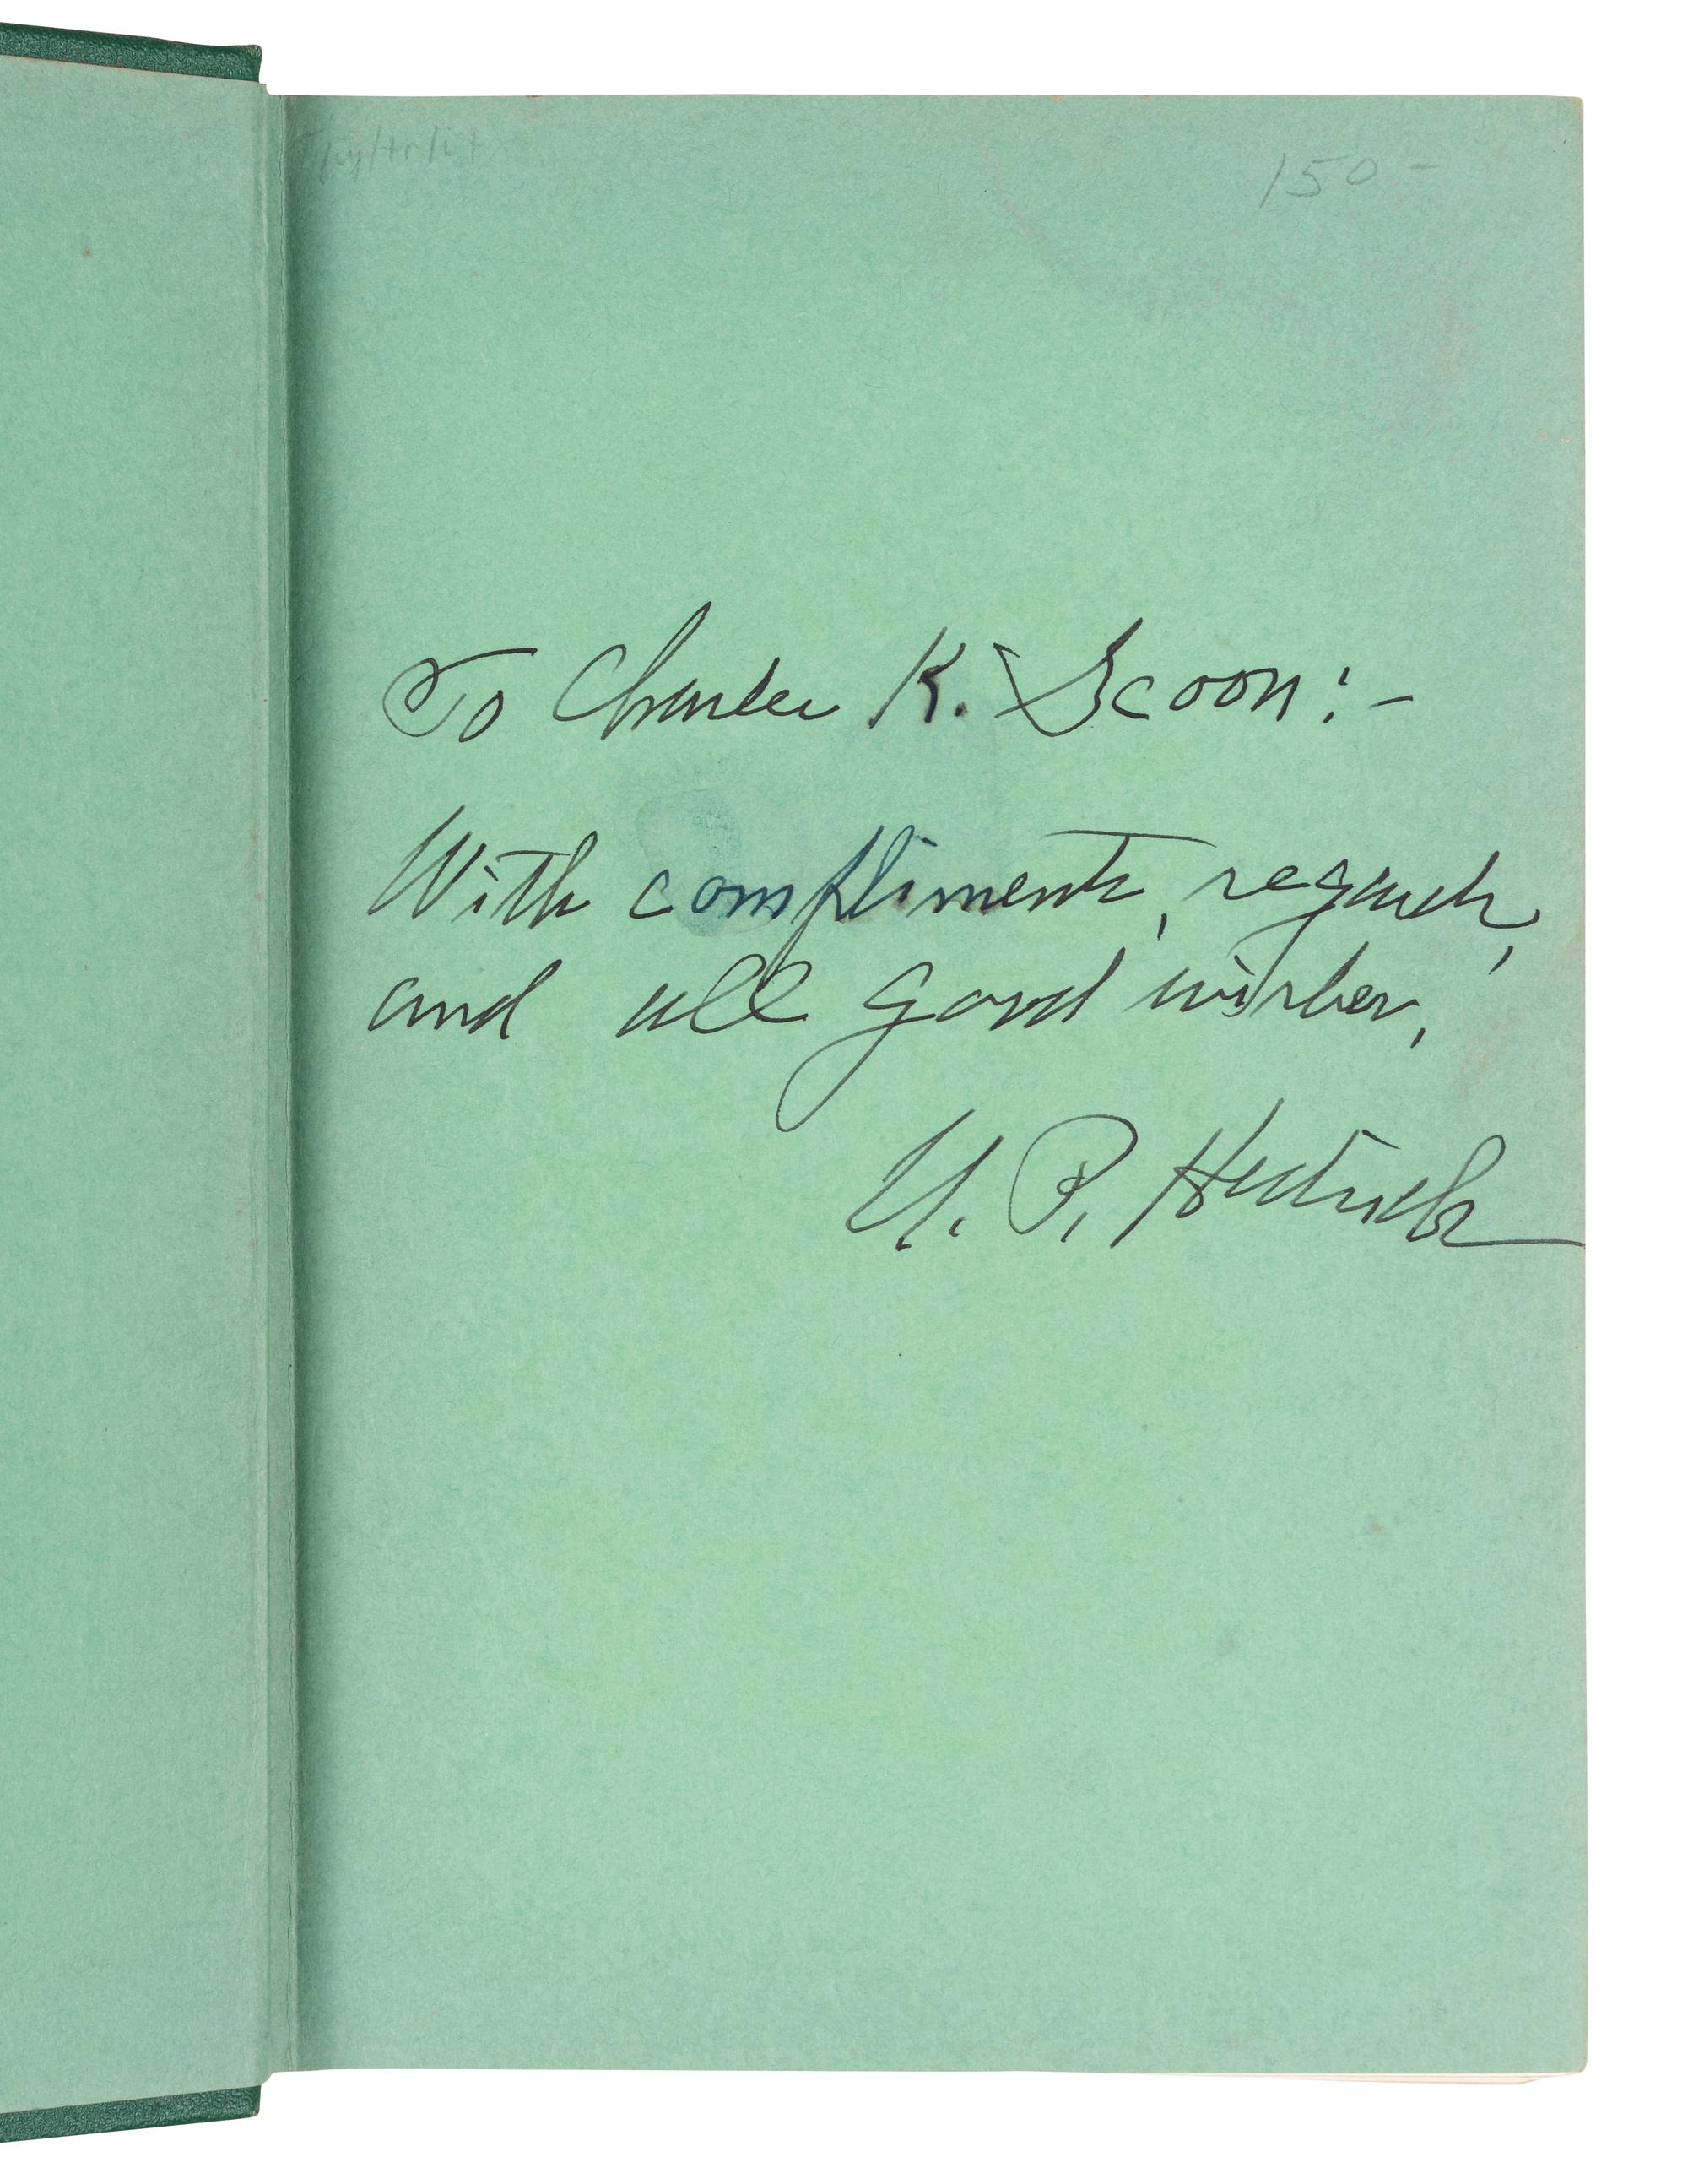 150-
To Charles K. Scoon:-
With compliments, regards,
and all good wishes,
U. P. Hedrick